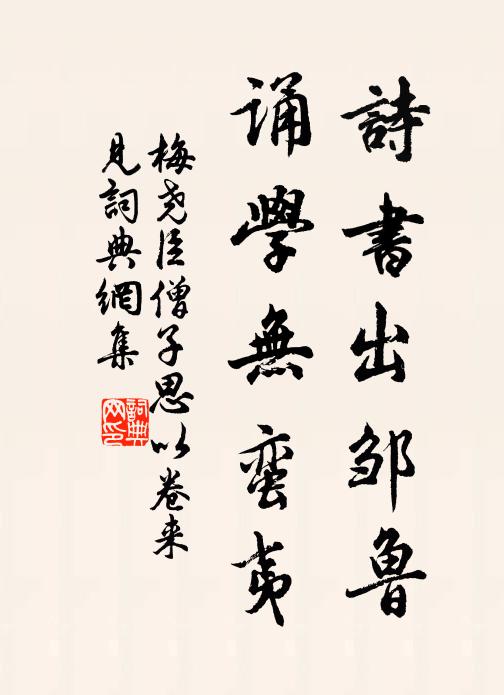 詩書出邹魯
誦學無蛮夷
梅尧臣僧子思以卷来
見詞典網集
詞典
网印